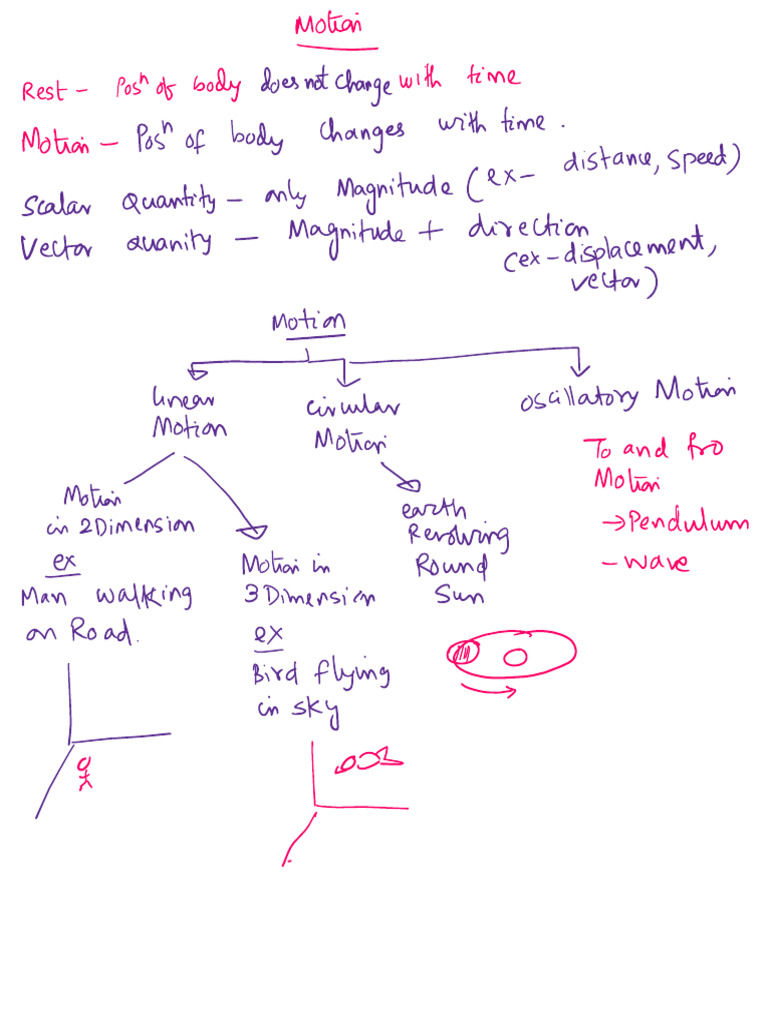 Motion
Rest - Posⁿ of body does not change with time
Motion - Posⁿ of body changes with time.
Scalar Quantity - only Magnitude (ex- distance, speed)
Vector quanity - Magnitude + direction
(ex - displacement,
vector)
Motion
linear
Motion
circular
Motion
oscillatory Motion
To and fro
Motion
→ Pendulum
- wave
Motion
in 2Dimension
ex
Man walking
on Road.
Motion in
3 Dimension
ex
Bird flying
in sky
earth
Revolving
Round
Sun